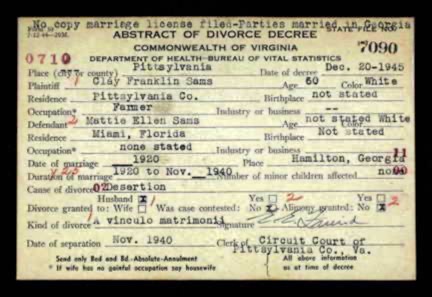 No copy marriage license filed-Parties married in Georgia
ABSTRACT OF DIVORCE DECREE STATE FILE NO.
COMMONWEALTH OF VIRGINIA 7090
0710 DEPARTMENT OF HEALTH—BUREAU OF VITAL STATISTICS
Place (city or county) Pittsylvania Date of decree Dec. 20-1945
Plaintiff 1 Clay Franklin Sams Age 60 Color White
Residence Pittsylvania Co. Birthplace not stated
Occupation* Farmer Industry or business --
Defendant 2 Mattie Ellen Sams Age not stated Color White
Residence Miami, Florida Birthplace Not stated
Occupation* none stated Industry or business
Date of marriage 1920 Place Hamilton, Georgia 11
Duration of marriage 1920 to Nov. 1940 Number of minor children affected none 00
Cause of divorce 02 Desertion
Divorce granted to: Husband X Wife 1 Was case contested: Yes No X 2 Alimony granted: Yes No X 2
Kind of divorce A vinculo matrimonii
Date of separation Nov. 1940 Clerk of Circuit Court of
Pittsylvania Co., Va.
Send only Bed and Bd.-Absolute-Annulment All above information
* If wife has no gainful occupation say housewife as at time of decree